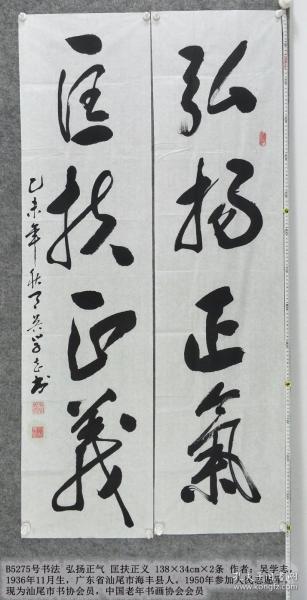 弘扬正氣
匡扶正義
乙未年秋月吴学志书
B5275号书法 弘扬正气 匡扶正义 138×34cm×2条 作者：吴学志，
1936年11月生，广东省汕尾市海丰县人，1950年参加人民志愿军，
现为汕尾市书协会员，中国老年书画协会会员